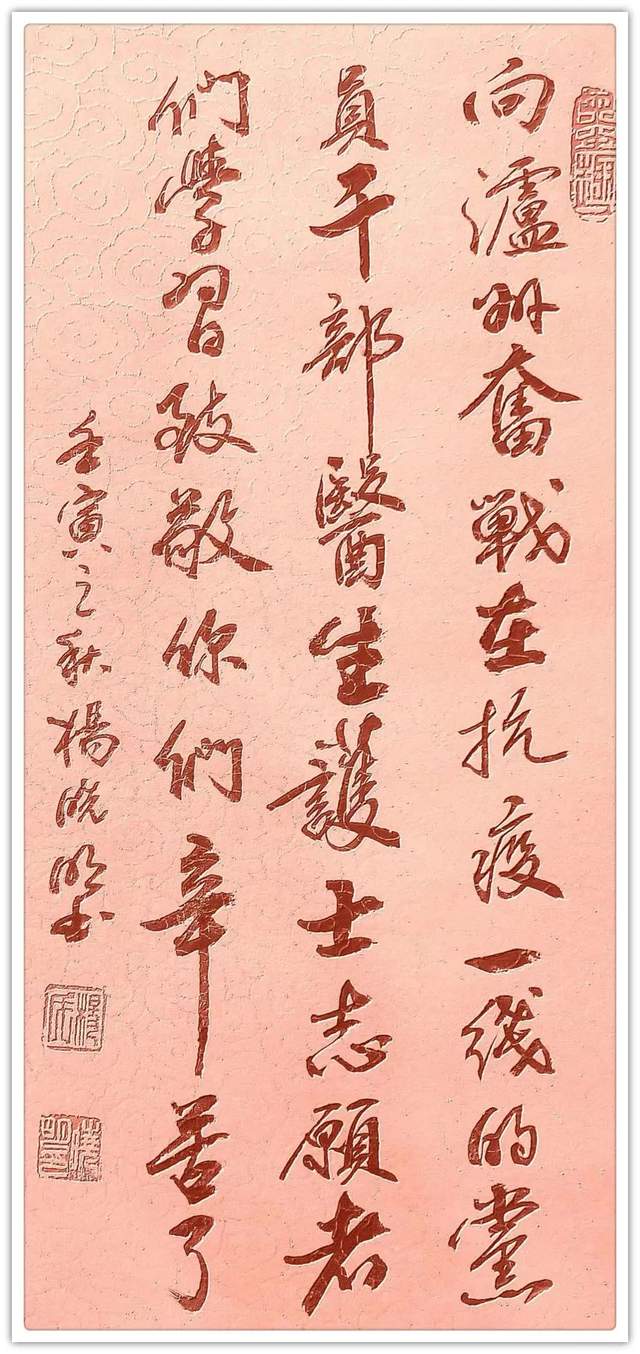 向瀘州奮戰在抗疫一綫的黨
員干部醫生護士志願者
們學習致敬你們辛苦了
壬寅之秋楊曉明書